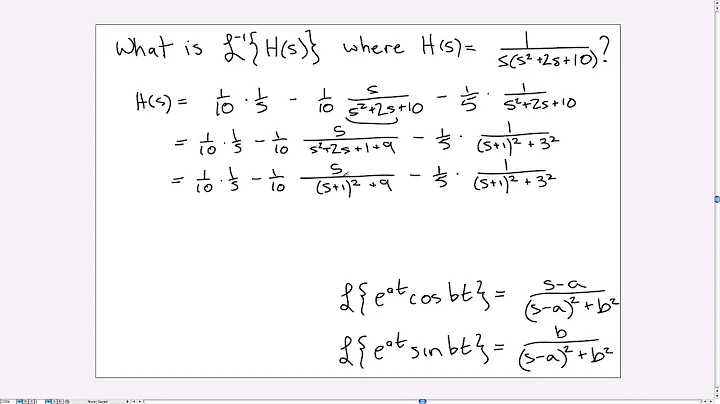 What is ℒ⁻¹{H(s)} where H(s) = 1/(s(s²+2s+10))?
H(s) = 1/10 · 1/s − 1/10 s/(s²+2s+10) − 1/5 · 1/(s²+2s+10)
= 1/10 · 1/s − 1/10 s/(s²+2s+1+9) − 1/5 · 1/((s+1)²+3²)
= 1/10 · 1/s − 1/10 s/((s+1)²+9) − 1/5 · 1/((s+1)²+3²)
ℒ{e^(at) cos bt} = (s−a)/((s−a)²+b²)
ℒ{e^(at) sin bt} = b/((s−a)²+b²)